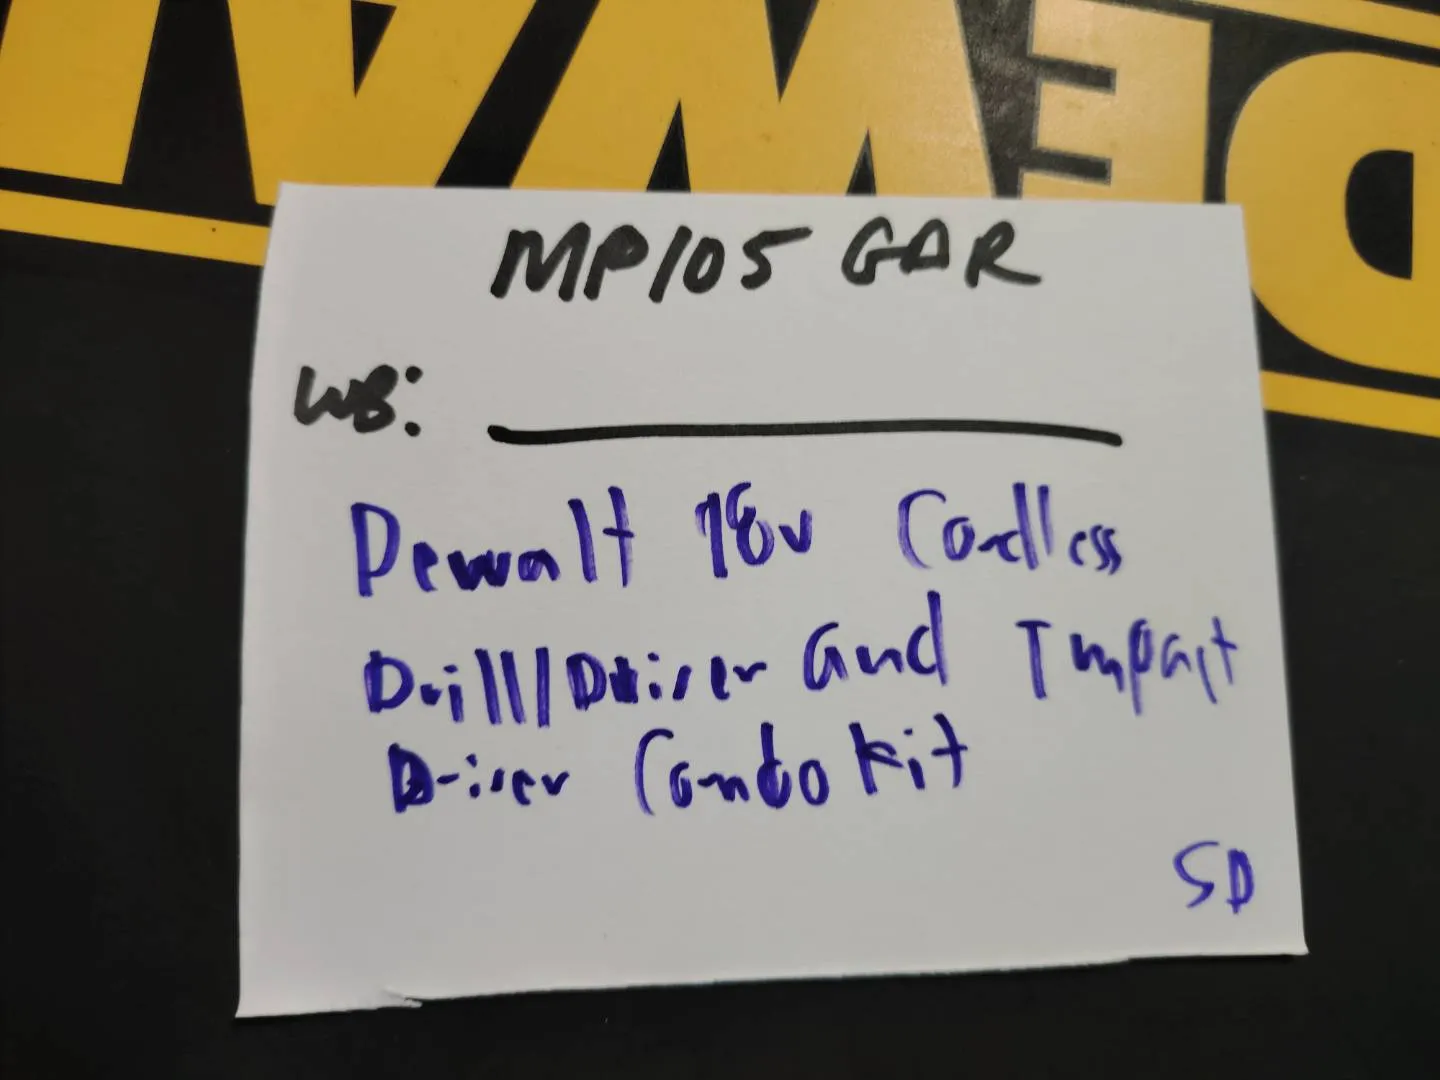 DEWA
MP105 GAR
WB:
Dewalt 18v Cordless
Drill/Driver and Impact
Driver Combo Kit
SD